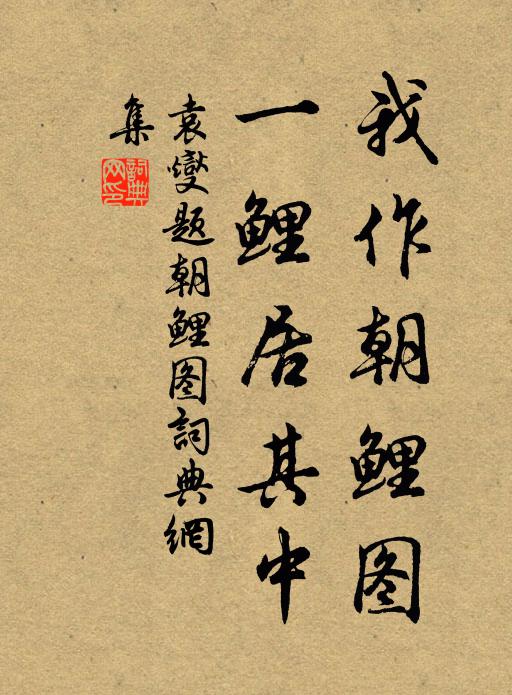 我作朝鲤图
一鲤居其中
袁燮题朝鲤图詞典網
集
詞典网印